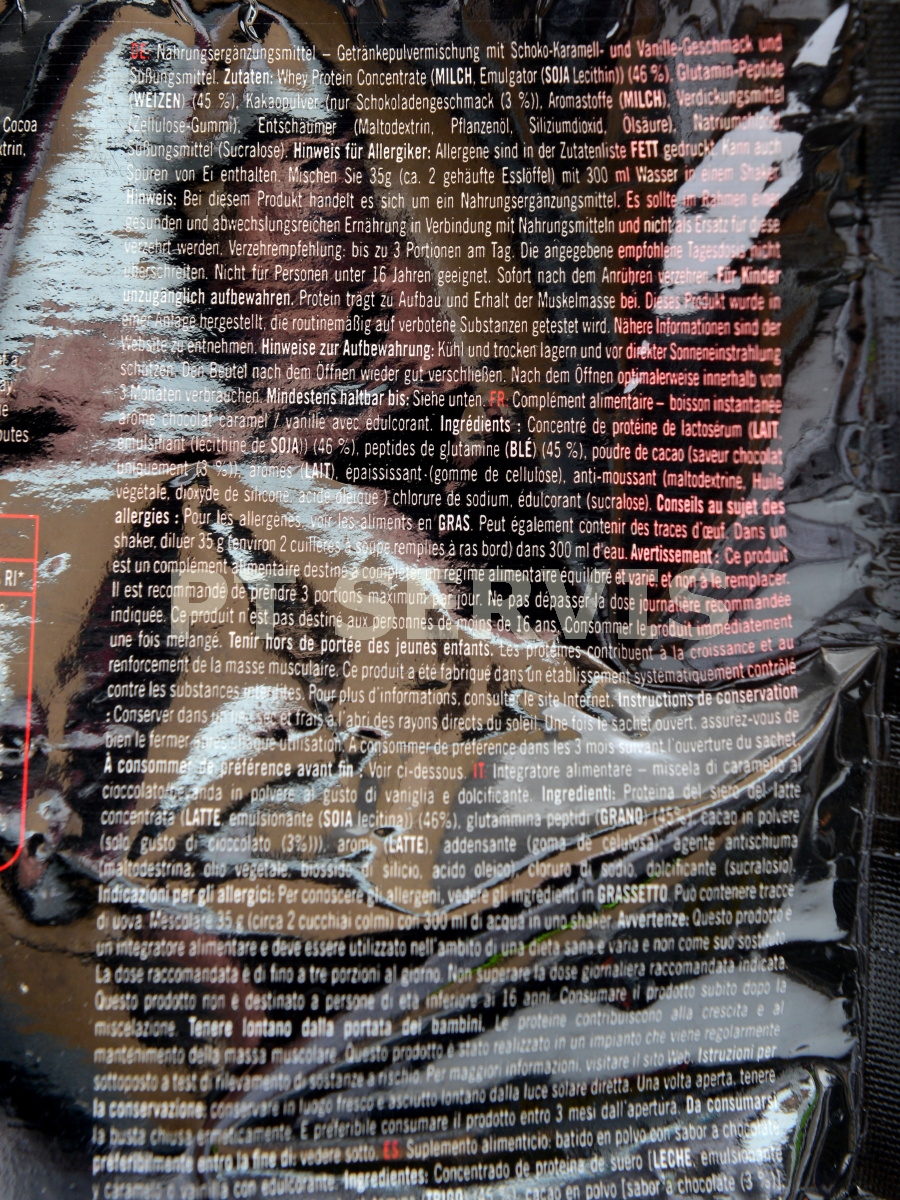 DE: Nahrungsergänzungsmittel – Getränkepulvermischung mit Schoko-Karamell- und Vanille-Geschmack und
Süßungsmittel. Zutaten: Whey Protein Concentrate (MILCH, Emulgator (SOJA Lecithin)) (46 %), Glutamin-Peptide
(WEIZEN) (45 %), Kakaopulver (nur Schokoladengeschmack (3 %)), Aromastoffe (MILCH), Verdickungsmittel
(Zellulose-Gummi), Entschäumer (Maltodextrin, Pflanzenöl, Siliziumdioxid, Ölsäure), Natriumchlorid,
Süßungsmittel (Sucralose). Hinweis für Allergiker: Allergene sind in der Zutatenliste FETT gedruckt. Kann auch
Spuren von Ei enthalten. Mischen Sie 35g (ca. 2 gehäufte Esslöffel) mit 300 ml Wasser in einem Shaker.
Hinweis: Bei diesem Produkt handelt es sich um ein Nahrungsergänzungsmittel. Es sollte im Rahmen einer
gesunden und abwechslungsreichen Ernährung in Verbindung mit Nahrungsmitteln und nicht als Ersatz für diese
verzehrt werden. Verzehrempfehlung: bis zu 3 Portionen am Tag. Die angegebene empfohlene Tagesdosis nicht
überschreiten. Nicht für Personen unter 16 Jahren geeignet. Sofort nach dem Anrühren verzehren. Für Kinder
unzugänglich aufbewahren. Protein trägt zu Aufbau und Erhalt der Muskelmasse bei. Dieses Produkt wurde in
einer Anlage hergestellt, die routinemäßig auf verbotene Substanzen getestet wird. Nähere Informationen sind der
Website zu entnehmen. Hinweise zur Aufbewahrung: Kühl und trocken lagern und vor direkter Sonneneinstrahlung
schützen. Den Beutel nach dem Öffnen wieder gut verschließen. Nach dem Öffnen optimalerweise innerhalb von
3 Monaten verbrauchen. Mindestens haltbar bis: Siehe unten. FR: Complément alimentaire – boisson instantanée
arôme chocolat caramel / vanille avec édulcorant. Ingrédients : Concentré de protéine de lactosérum (LAIT,
émulsifiant (lécithine de SOJA)) (46 %), peptides de glutamine (BLÉ) (45 %), poudre de cacao (saveur chocolat
uniquement (3 %)), arômes (LAIT), épaississant (gomme de cellulose), anti-moussant (maltodextrine, Huile
végétale, dioxyde de silicone, acide oléique ) chlorure de sodium, édulcorant (sucralose). Conseils au sujet des
allergies : Pour les allergènes, voir les aliments en GRAS. Peut également contenir des traces d'œuf. Dans un
shaker, diluer 35 g (environ 2 cuillères à soupe remplies à ras bord) dans 300 ml d'eau. Avertissement : Ce produit
est un complément alimentaire destiné à compléter un régime alimentaire équilibré et varié, et non à le remplacer.
Il est recommandé de prendre 3 portions maximum par jour. Ne pas dépasser la dose journalière recommandée
indiquée. Ce produit n'est pas destiné aux personnes de moins de 16 ans. Consommer le produit immédiatement
une fois mélangé. Tenir hors de portée des jeunes enfants. Les protéines contribuent à la croissance et au
renforcement de la masse musculaire. Ce produit a été fabriqué dans un établissement systématiquement contrôlé
contre les substances interdites. Pour plus d'informations, consultez ce site Internet. Instructions de conservation
: Conserver dans un lieu sec et frais à l'abri des rayons directs du soleil. Une fois le sachet ouvert, assurez-vous de
bien le fermer après chaque utilisation. A consommer de préférence dans les 3 mois suivant l'ouverture du sachet.
À consommer de préférence avant fin : Voir ci-dessous. IT: Integratore alimentare – miscela di caramello al
cioccolato bevanda in polvere al gusto di vaniglia e dolcificante. Ingredienti: Proteina del siero del latte
concentrata (LATTE, emulsionante (SOIA lecitina)) (46%), glutammina peptidi (GRANO) (45%), cacao in polvere
(solo gusto di cioccolato (3%))), aromi (LATTE), addensante (goma de celulosa), agente antischiuma
(maltodestrina, olio vegetale, biossido di silicio, acido oleico) cloruro di sodio, dolcificante (sucralosio).
Indicazioni per gli allergici: Per conoscere gli allergeni, vedere gli ingredienti in GRASSETTO. Può contenere tracce
di uova. Mescolare 35 g (circa 2 cucchiai colmi) con 300 ml di acqua in uno shaker. Avvertenze: Questo prodotto è
un integratore alimentare e deve essere utilizzato nell'ambito di una dieta sana e varia e non come suo sostituto.
La dose raccomandata è di fino a tre porzioni al giorno. Non superare la dose giornaliera raccomandata indicata.
Questo prodotto non è destinato a persone di età inferiore ai 16 anni. Consumare il prodotto subito dopo la
miscelazione. Tenere lontano dalla portata dei bambini. Le proteine contribuiscono alla crescita e al
mantenimento della massa muscolare. Questo prodotto è stato realizzato in un impianto che viene regolarmente
sottoposto a test di rilevamento di sostanze a rischio. Per maggiori informazioni, visitare il sito Web. Istruzioni per
la conservazione: conservare in luogo fresco e asciutto lontano dalla luce solare diretta. Una volta aperta, tenere
la busta chiusa ermeticamente. È preferibile consumare il prodotto entro 3 mesi dall'apertura. Da consumarsi
preferibilmente entro la fine di: vedere sotto. ES: Suplemento alimenticio: batido en polvo con sabor a chocolate
y caramelo / vainilla con edulcorante. Ingredientes: Concentrado de proteína de suero (LECHE, emulsionante
(TRIGO) (45 %), cacao en polvo [sabor a chocolate (3 %)],
Cocoa
RI*
PT SERVIS